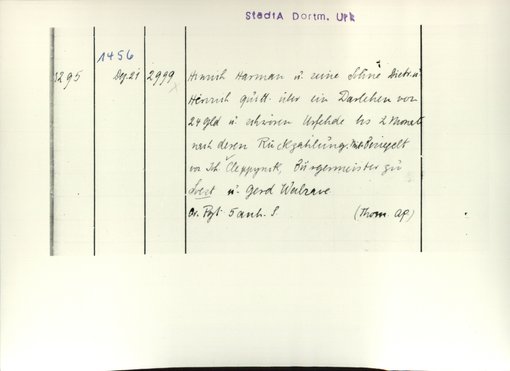 StadtA Dortm. Urk
1456
3295 Dez. 21 2999 Hinrich Harman u seine Söhne Dietr. u
Heinrich quitt. über ein Darlehen von
24 Gld u schwören Urfehde bis 2 Monate
nach deren Rückzahlung. Mitbesiegelt
von Joh Cleppynk, Bürgermeister zu
Soest u. Gerd
Or. Pgt. 5 anh. S. (Thom. ap)